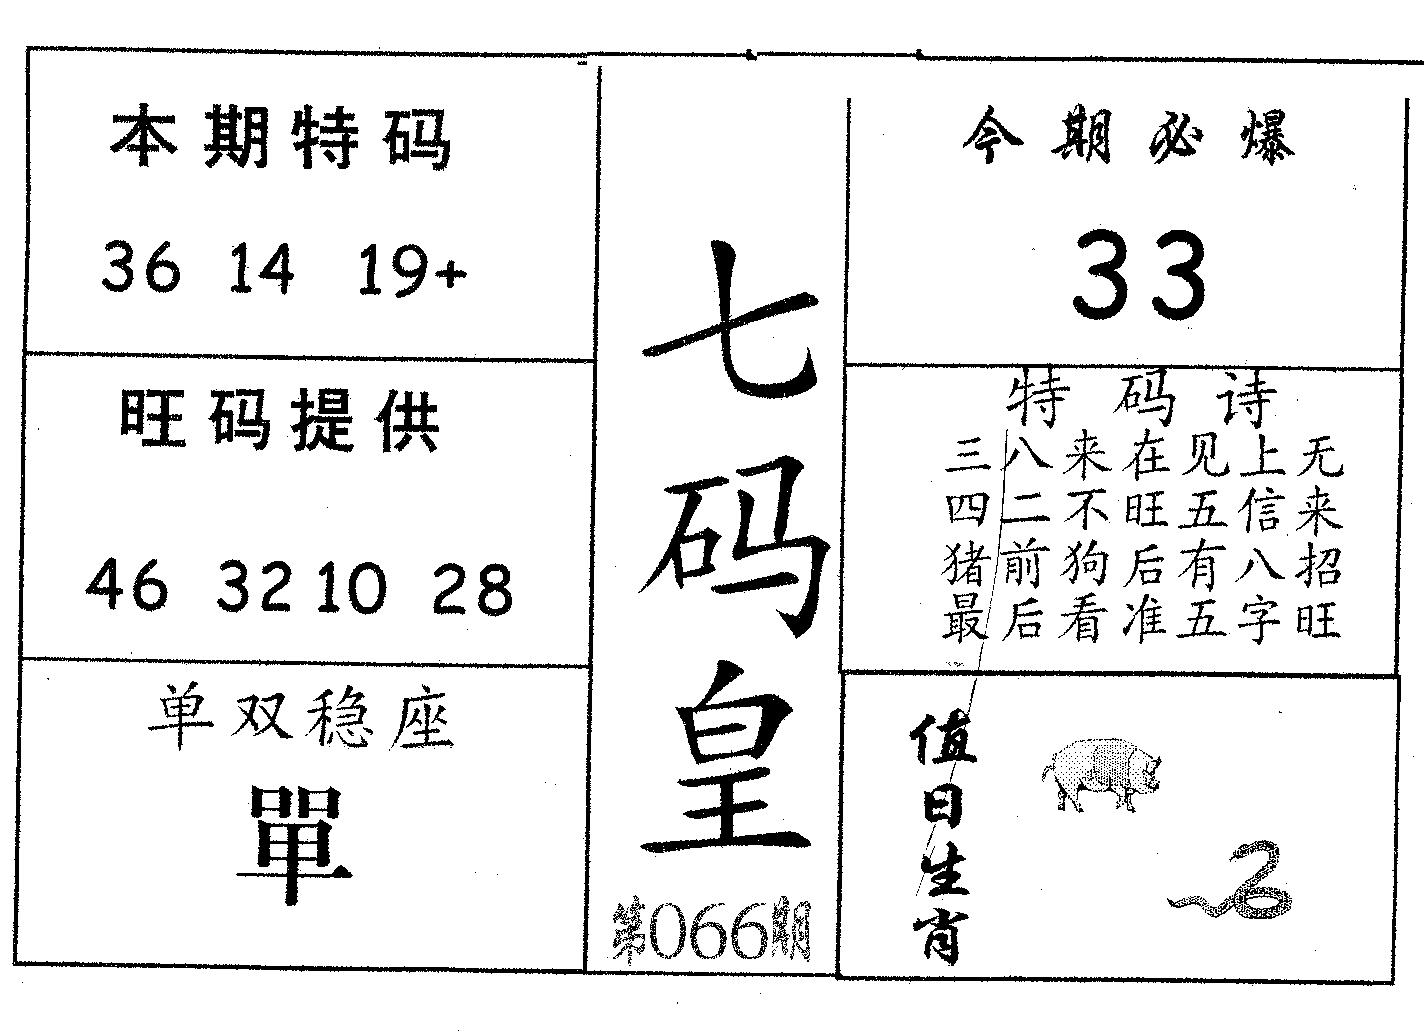 本期特码
36 14 19+
旺码提供
46 32 10 28
单双稳座
單
七码皇
第066期
今期必爆
33
特码诗
三八来在见上无
四二不旺五信来
猪前狗后有八招
最后看准五字旺
值日生肖